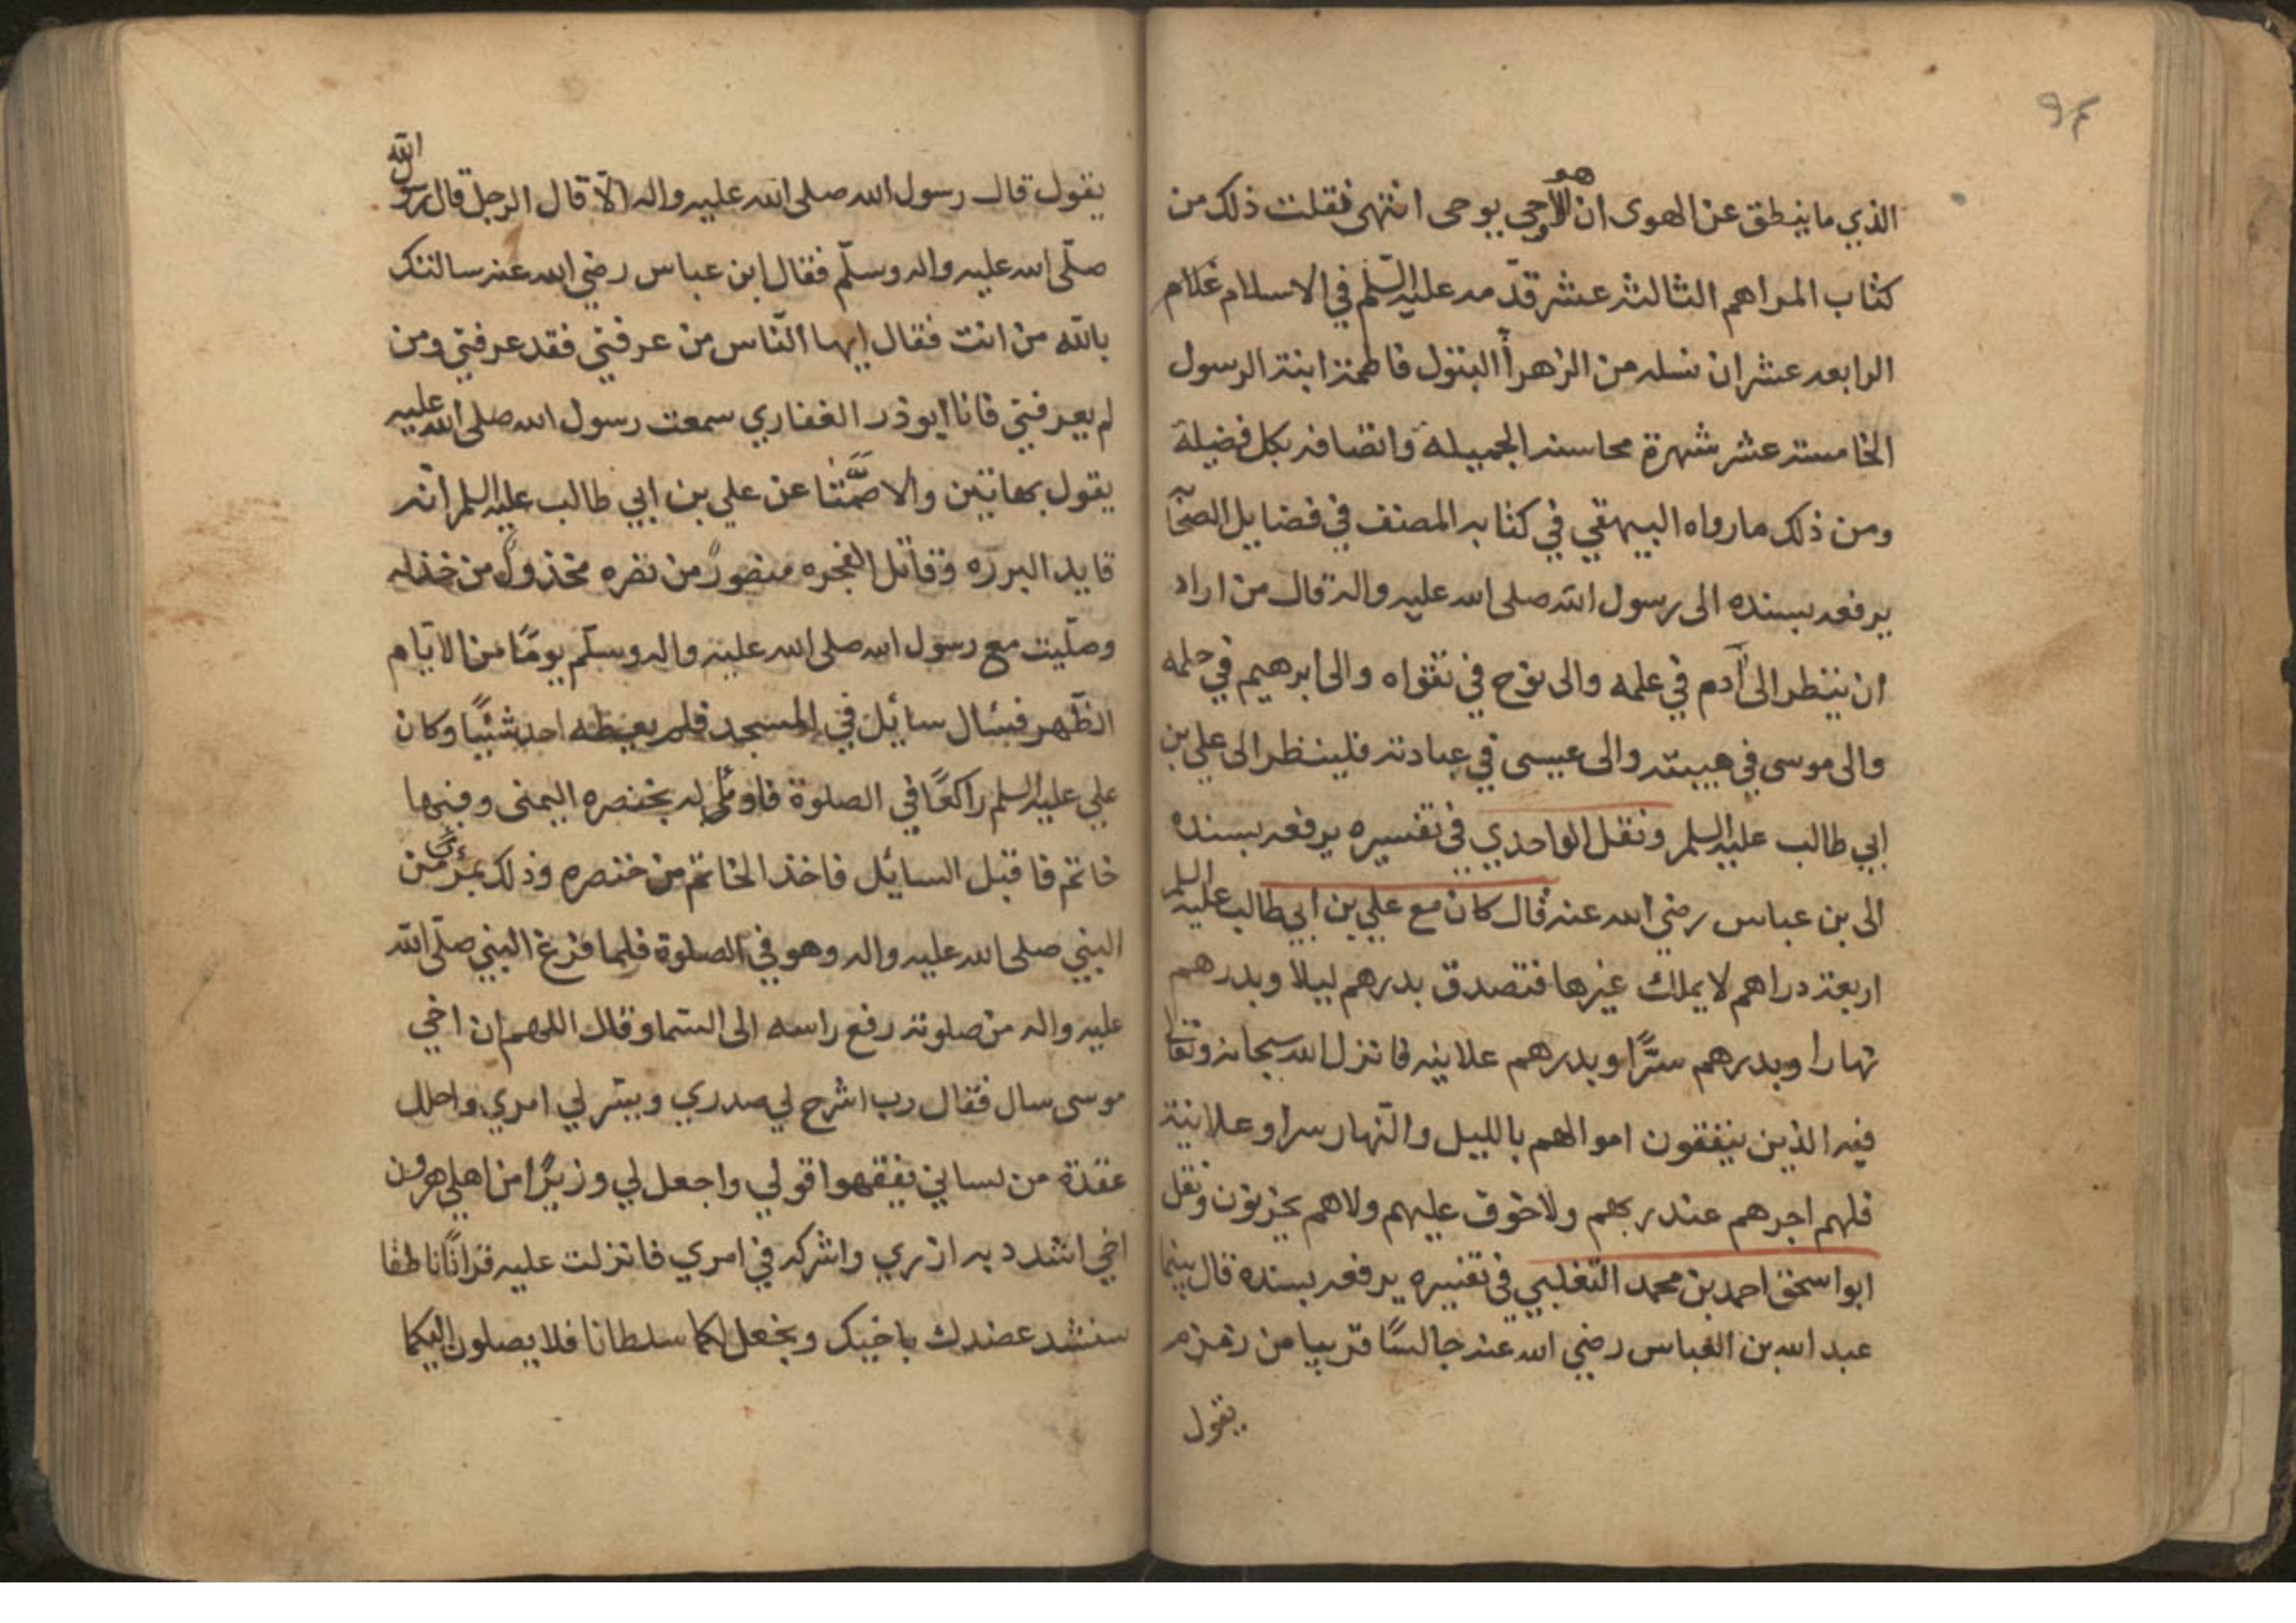 ٩٤
الذي ما ينطق عن الهوى ان هو الا وحي يوحى انتهى فقلت ذلك من
كتاب المراهم الثالثه عشر قدمه عليه السلم في الاسلام غلام
الرابعه عشر ان نسله من الزهرآ البتول فاطمة ابنة الرسول
الخامسة عشر شهرة محاسنه الجميلة واتصافه بكل فضيلة
ومن ذلك ما رواه البيهقي في كتابه المصنف في فضايل الصحآبه
يرفعه بسنده الى رسول الله صلى الله عليه واله قال من اراد
ان ينظر الى آدم في علمه والى نوح في تقواه والى ابرهيم في حلمه
والى موسى في هيبته والى عيسى في عبادته فلينظر الى علي بن
ابي طالب عليه السلم ونقل الواحدي في تفسيره يرفعه بسنده
الى بن عباس رضي الله عنه قال كان مع علي بن ابي طالب عليه السلم
اربعة دراهم لا يملك غيرها فتصدق بدرهم ليلا وبدرهم
نهارا وبدرهم سرًّا وبدرهم علانيه فانزل الله سبحانه وتعالى
فيه الذين ينفقون اموالهم بالليل والنهار سرا وعلانية
فلهم اجرهم عند ربهم ولا خوف عليهم ولاهم يحزنون ونقل
ابو اسحق احمد بن محمد الثعلبي في تفسيره يرفعه بسنده قال بينما
عبد الله بن العباس رضي الله عنه جالسًا قريبا من زمزم
يقول
يقول قال رسول الله صلى الله عليه واله الّا قال الرجل قال رسول الله
صلّى الله عليه واله وسلّم فقال ابن عباس رضي الله عنه سالتك
بالله من انت فقال ايها النّاس من عرفني فقد عرفني ومن
لم يعرفني فانا ابوذر الغفاري سمعت رسول الله صلى الله عليه
يقول بهاتين والا صمّتا عن علي بن ابي طالب عليه السلم انه
قايد البرره وقاتل الفجره منصورٌ من نصره مخذولٌ من خذله
وصلّيت مع رسول الله صلى الله عليه واله وسلّم يومًا من الايّام
الظّهر فسئال سائيل في المسجد فلم يعطه احد شيًئا وكان
علي عليه السلم راكعًا في الصلوة فاومئ له بخنصره اليمنى وفيها
خاتم فاقبل السائيل فاخذ الخاتم من خنصره وذلك بمرئًى من
النبي صلى الله عليه واله وهو في الصلوة فلما فرغ النبي صلّى الله
عليه واله من صلوته رفع راسه الى السّما وقال اللهم ان اخي
موسى سال فقال رب اشرح لي صدري ويسّر لي امري واحلل
عقدة من لساني يفقهوا قولي واجعل لي وزيرًا من اهلي هرون
اخي اشدد به ازري واشركه في امري فانزلت عليه قرانًا ناطقا
سنشد عضدك باخيك ونجعل لكما سلطانا فلا يصلون اليكما